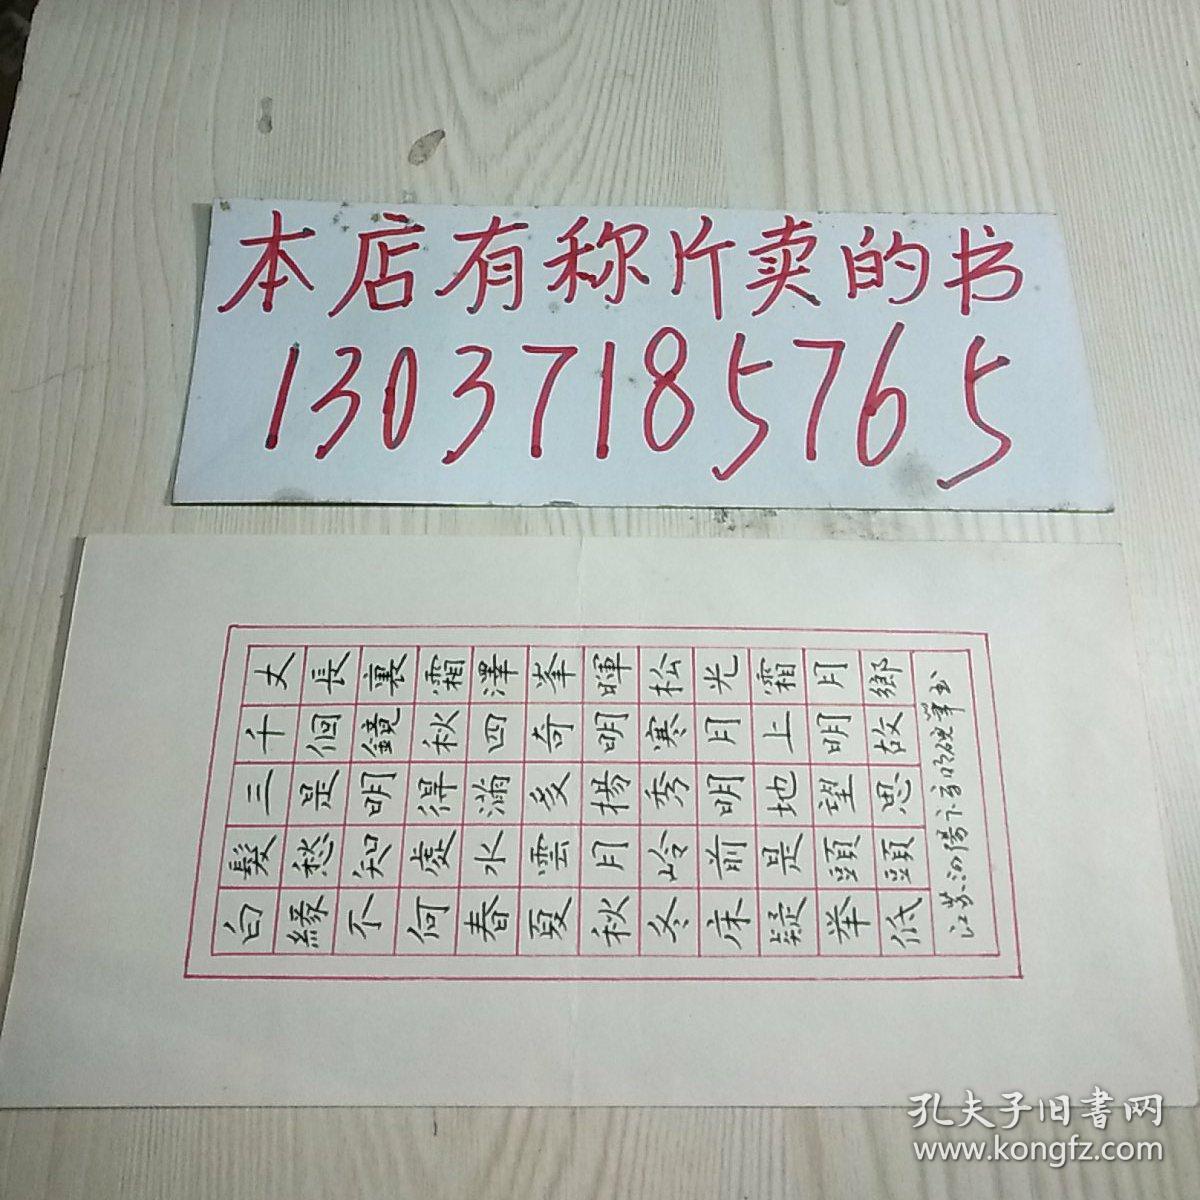 本店有称斤卖的书
13037185765
白髮三千丈
緣愁是個長
不知明鏡裏
何處得秋霜
春水滿四澤
夏雲多奇峯
秋月揚明暉
冬岭秀寒松
床前明月光
疑是地上霜
举頭望明月
低頭思故鄉
江苏沭陽卞硬筆书
孔夫子旧書网
www.kongfz.com